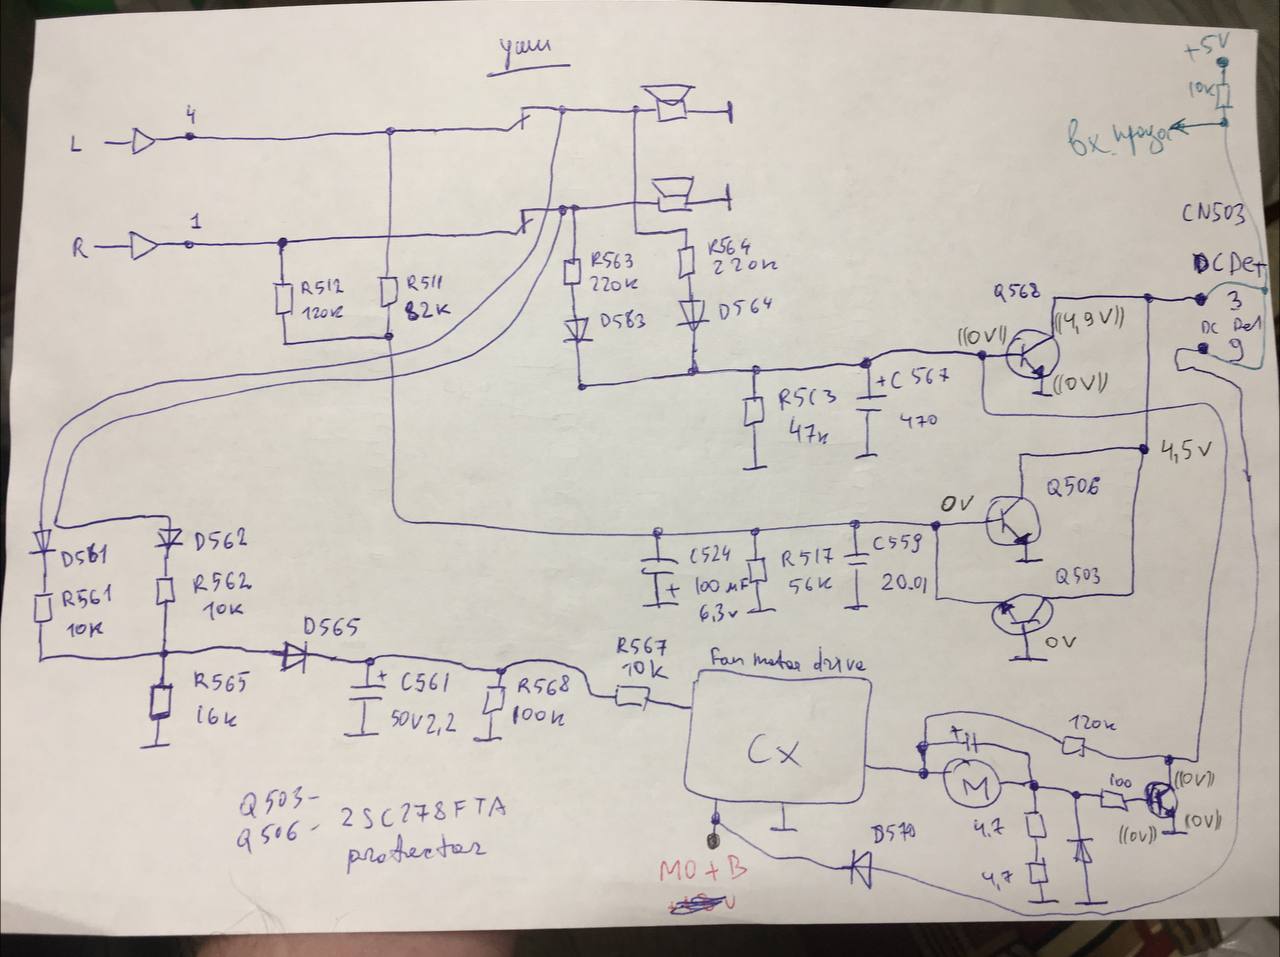 +5V
10K
CN503
L
4
R
1
R512
120K
R511
82K
R563
220K
D583
R564
220K
D564
Q568
((4,9V))
((0V))
((0V))
DC Det
3
9
+
C567
470
R5C3
47K
4,5V
D581
R561
10K
D562
R562
10K
0V
Q506
Q503
0V
C524
+ 100 MF
6,3V
R517
56K
C559
20.01
D565
R565
16K
+
C561
50V2,2
R568
100K
R567
10K
Fan motor drive
Cx
120K
+
M
100
((0V))
((0V))
((0V))
4,7
4,7
D570
MO+B
Q503-
Q506- 2SC278FTA
protector